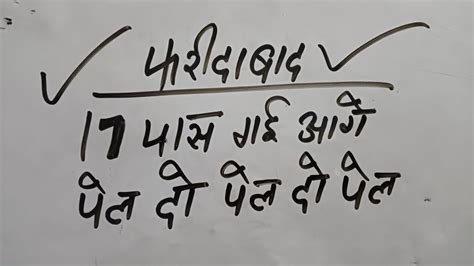 ✓ फरीदाबाद ✓
17 पास गई आगे
पेल दो पेल दो पेल